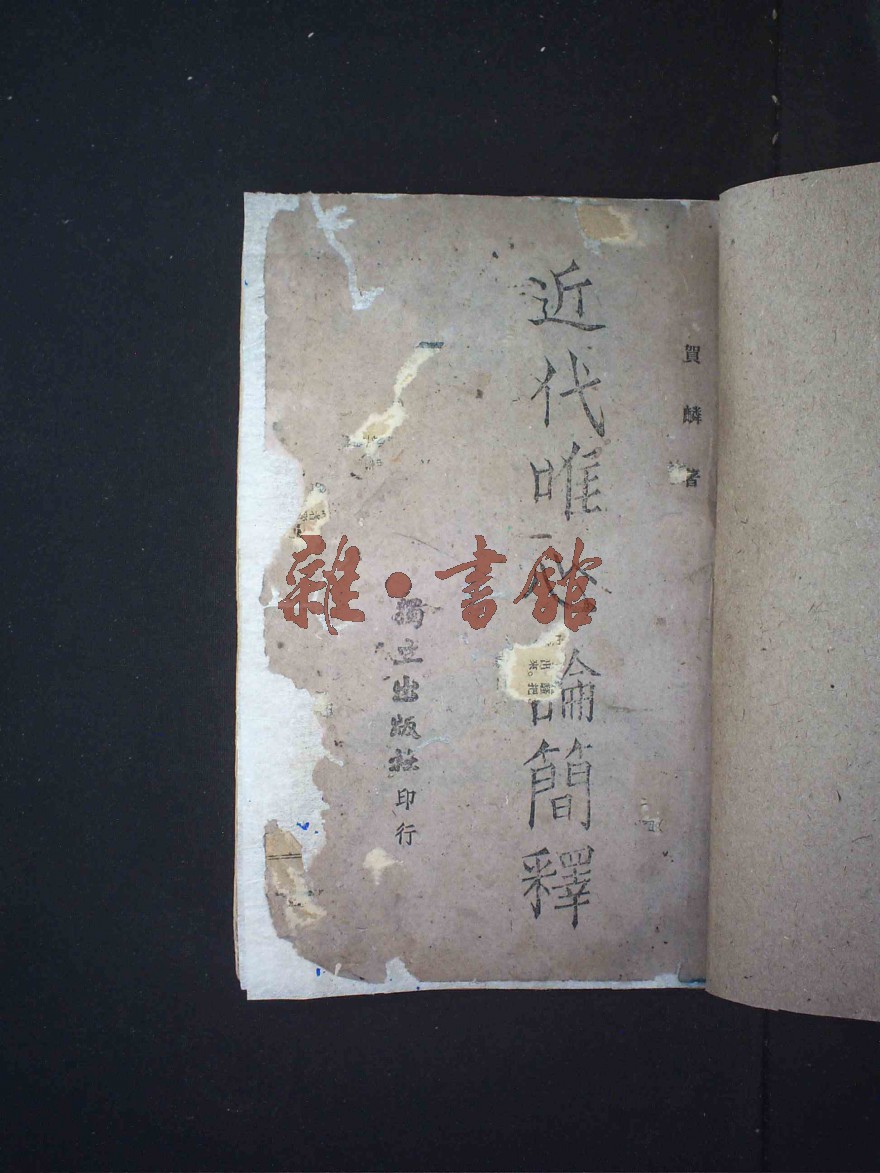 賀麟著
近代唯心論簡釋
獨立出版社印行
雜·書館